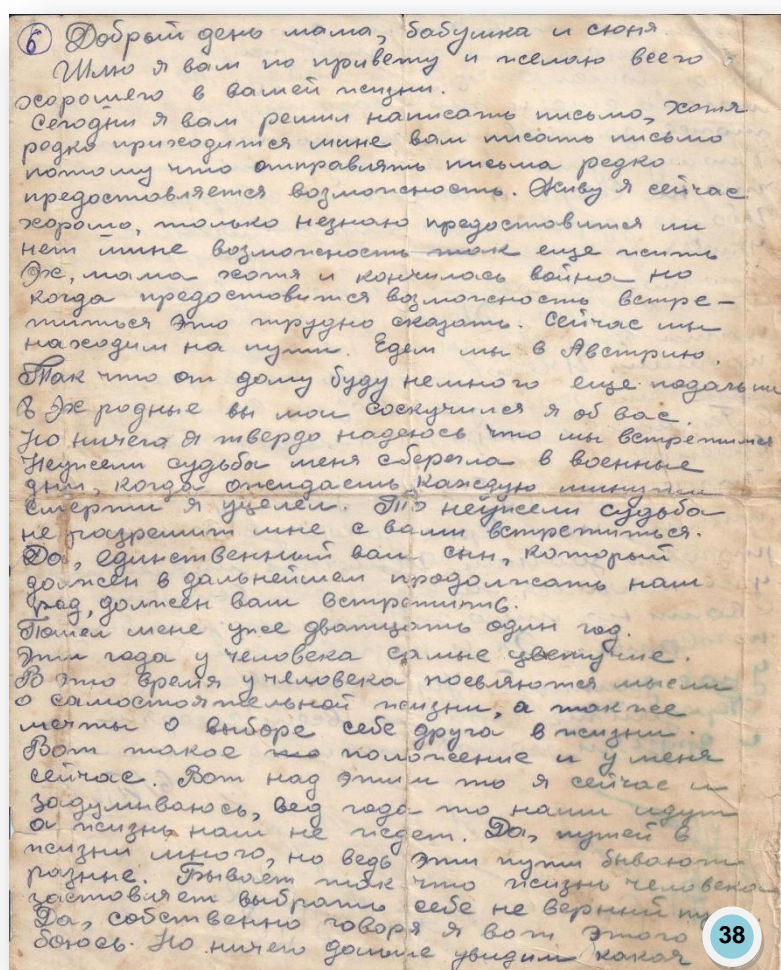 6 Добрый день мама, бабушка и сюня.
Шлю я вам по привету и желаю всего
хорошего в вашей жизни.
Сегодни я вам решил написать письмо, хотя
редко приходится мине вам писать письмо
потому что отправлять письма редко
предоставляется возможность. Живу я сейчас
хорошо, только незнаю предоставится ли
нет мине возможность так еще жить
Эх, мама хотя и кончилась война но
когда предоставится возможность встре-
титься это трудно сказать. Сейчас мы
находим на пути. Едем мы в Австрию.
Так что от дому буду немного еще подальши
Эх родные вы мои соскучился я об вас.
Но ничего я твердо надеюсь что мы встретимся
Неужели судьба меня сберегла в военные
дни, когда ожидаешь каждую минуту
смерти я уцелел. То неужели судьба
не разрешит мне с вами встретиться.
Да, единственный ваш сын, который
должен в дальнейшем продолжать наш
род, должен вам встретить.
Пошел мене уже дватцать один год.
Эти года у человека самые цветучие.
В это время у человека поевляются мысли
о самостоятельной жизни, а также
мечты о выборе себе друга в жизни.
Вот такое положение и у меня
сейчас. Вот над этим то я сейчас и
задумываюсь, вед года то наши идут
а жизнь нам не ждет. Да, путей в
жизни много, но ведь эти пути бывают
разные. Бывает так что жизнь человека
застовляет выбрать себе не верный
Да, собственно говоря я вот этого
боюсь. Но ничего дальше увидим какая
38